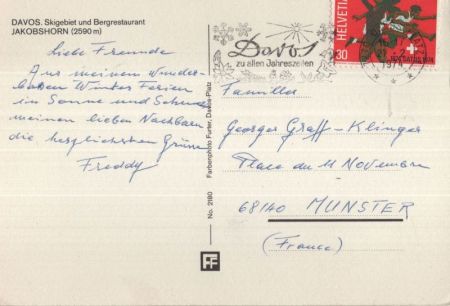 DAVOS. Skigebiet und Bergrestaurant
JAKOBSHORN (2590 m)
liebe Freunde
Aus meinen Wunder-
baren Winter Ferien
in Sonne und Schnee
meinen lieben Nachbarn
die herzlichsten Grüsse
Freddy
Farbenphoto Furter, Davos-Platz
No. 2180
FF
Davos
zu allen Jahreszeiten
1974
HELVETIA
30
Familla
Georges Graff-Klinger
Place du 11 Novembre
68140 MUNSTER
(France)